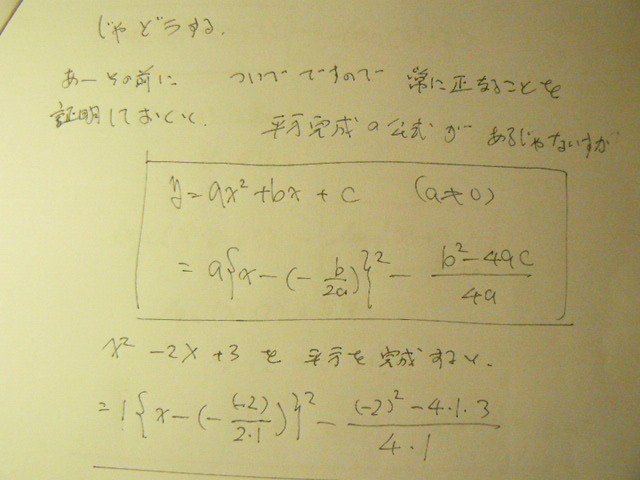 じゃどうする.
あーその前に ついでですので 常に正なることを
証明しておくと. 平方完成の公式が あるじゃないすか
y=ax²+bx+c (a≠0)
=a{x-(-b/2a)}²-(b²-4ac)/4a
x²-2x+3を 平方を完成すると.
=1{x-(-(-2)/2·1)}²-((-2)²-4·1·3)/4·1